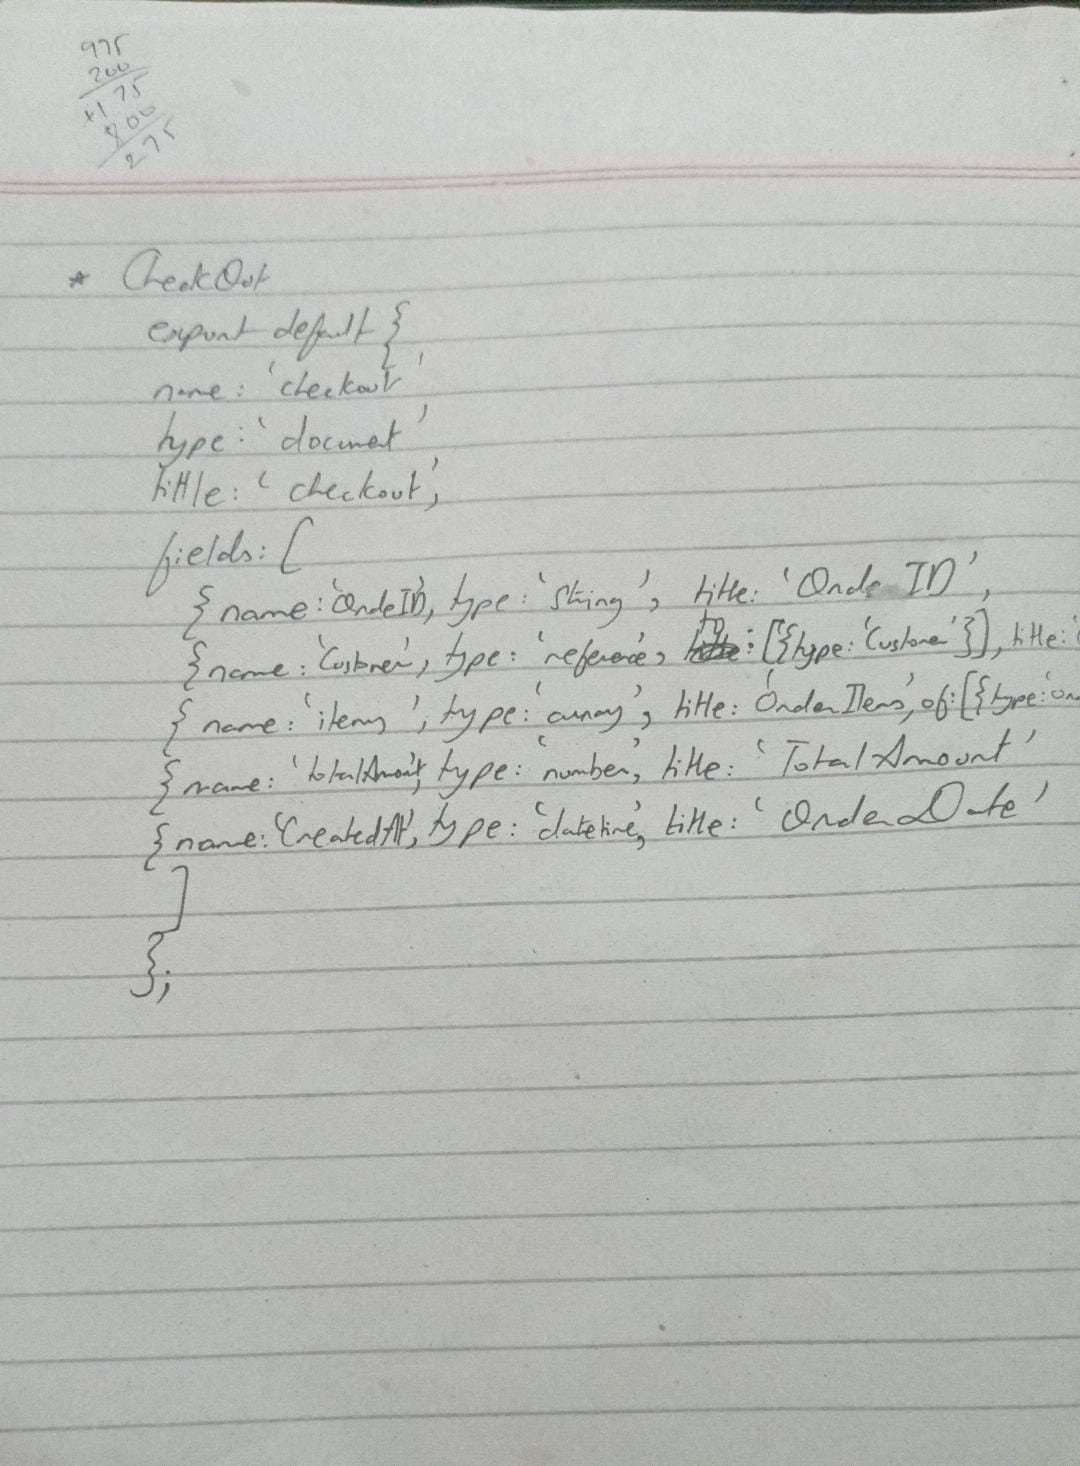 975
200
+175
800
275
* CheckOut
export default {
name: 'checkout'
type: 'document'
tittle: 'checkout',
fields: [
{ name: 'OrdeID', type: 'String', title: 'Orde ID',
{ name: 'Customer', type: 'reference', to: [{type: 'Customer'}], title: '
{ name: 'items', type: 'array', title: 'Order Items', of: [{type: 'or
{ name: 'totalAmount', type: 'number', title: 'Total Amount'
{ name: 'CreatedAt', type: 'datetime', title: 'Order Date'
]
};